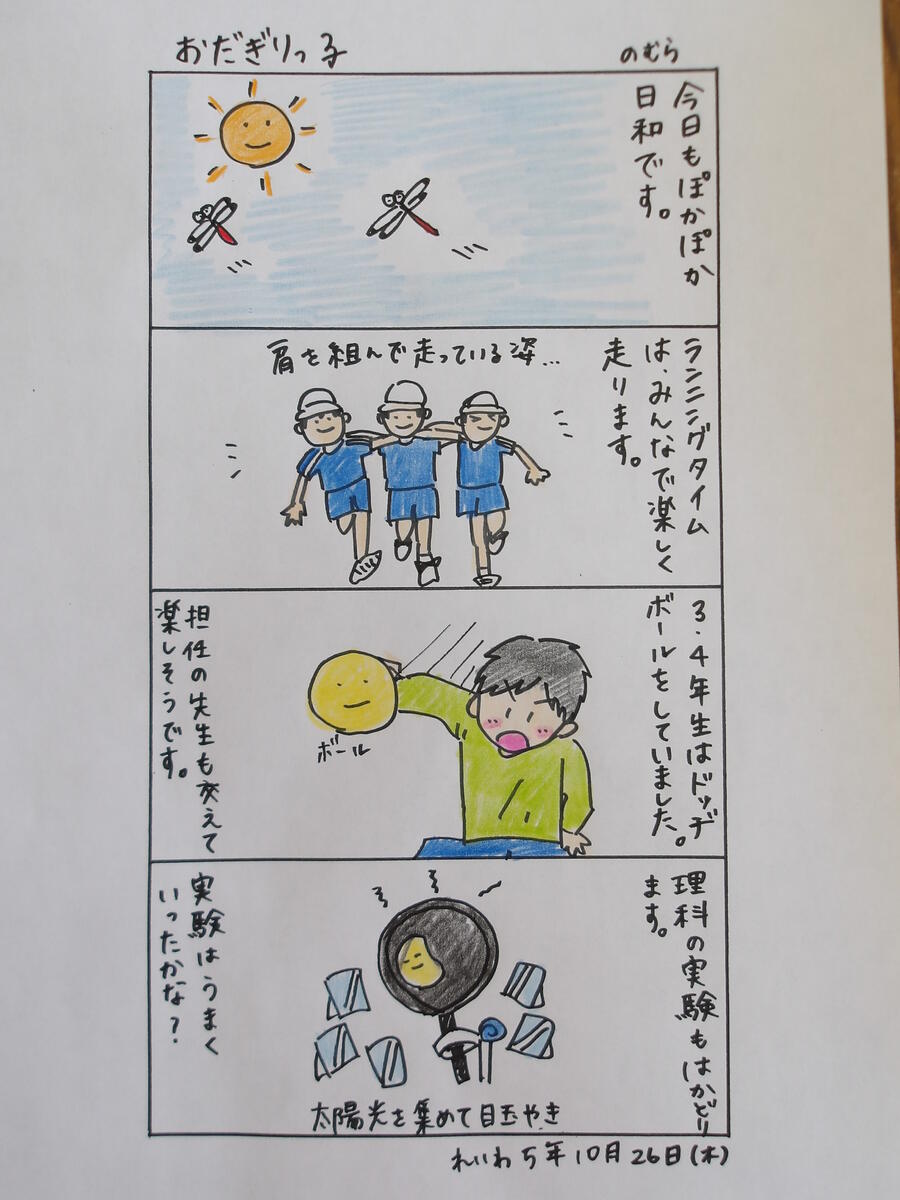 おだぎりっ子
のむら
今日もぽかぽか
日和です。
ランニングタイム
は、みんなで楽しく
走ります。
肩を組んで走っている姿…
3・4年生はドッヂ
ボールをしていました。
ボール
担任の先生も交えて
楽しそうです。
理科の実験もはかどり
ます。
実験はうまく
いったかな?
太陽光を集めて目玉やき
れいわ5年10月26日(木)